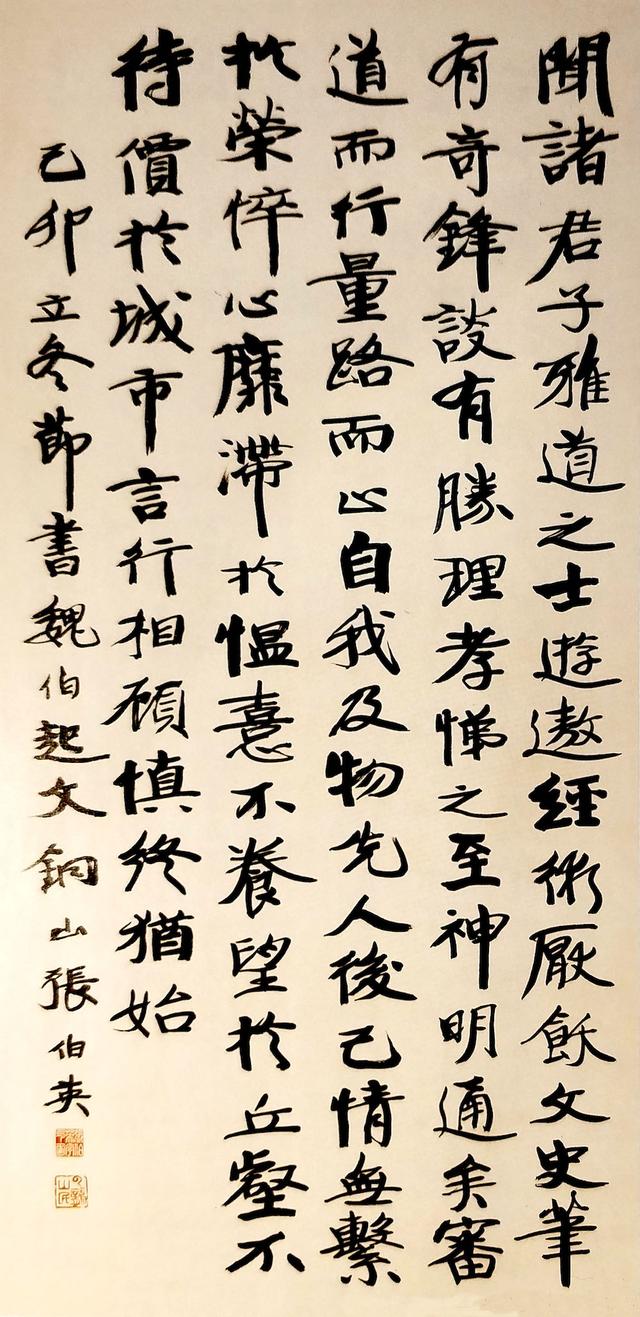 聞諸君子雅道之士遊遨經術厭飫文史筆
有奇鋒談有勝理孝悌之至神明通矣審
道而行量路而止自我及物先人後己情無繫
於榮悴心靡滯於愠憙不養望於丘壑不
待價於城市言行相顧慎終猶始
己卯立冬節書魏伯起文銅山張伯英